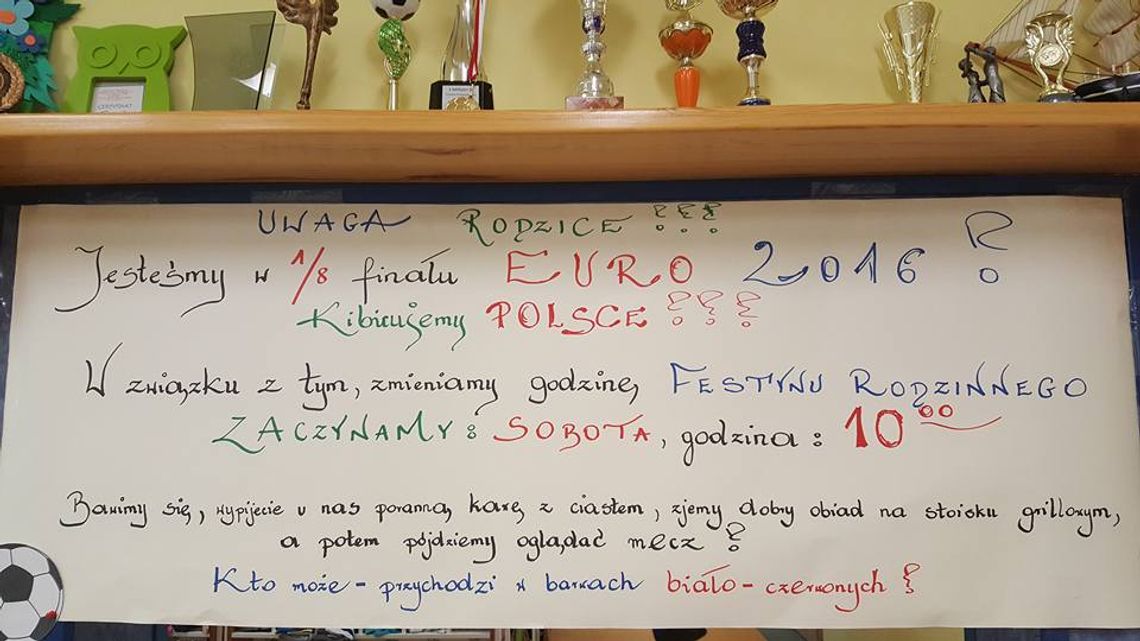 CERTYFIKAT
UWAGA RODZICE !!!
Jesteśmy w 1/8 finału EURO 2016 !
Kibicujemy POLSCE !!!
W związku z tym, zmieniamy godzinę FESTYNU RODZINNEGO
ZACZYNAMY: SOBOTA, godzina: 10⁰⁰
Bawimy się, wypijecie u nas poranną kawę z ciastem, zjemy dobry obiad na stoisku grillowym,
a potem pójdziemy oglądać mecz!
Kto może - przychodzi w barwach biało-czerwonych!